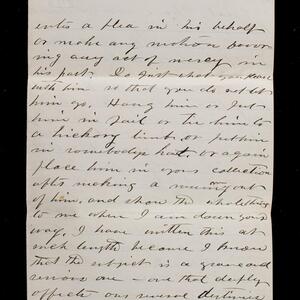 enter a plea in his behalf
or make any motion favor
ing any act of mercy in
his part. Do just what you please
with him so that you do not let
him go. Hang him or put
him in jail or tie him to
a hickory limb, or put him
in somebodys hat, or again
place him in your collection
after making a mummy out
of him, and show the whole thing
to me when I am down your
way. I have written this at
such length because I know
that the subject is a grave and
serious one - one that deeply
affects our several destinies